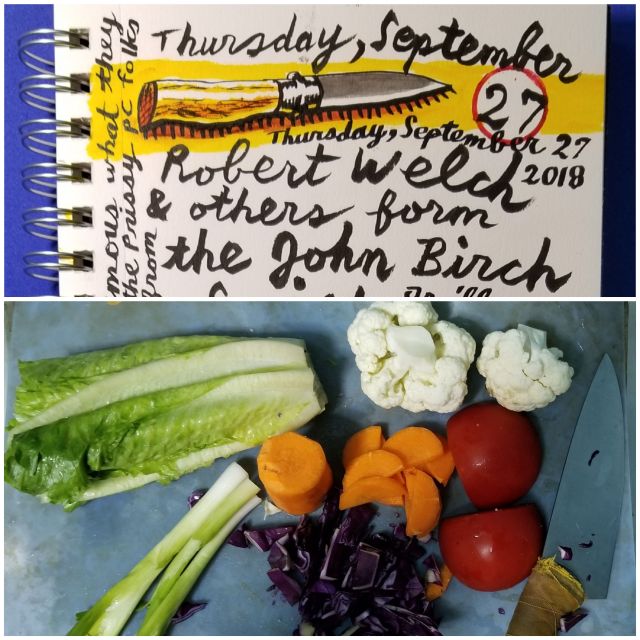 Thursday, September
27
Thursday, September 27
2018
Robert Welch
& others form
the John Birch
what they
the Prissy PC folks
from